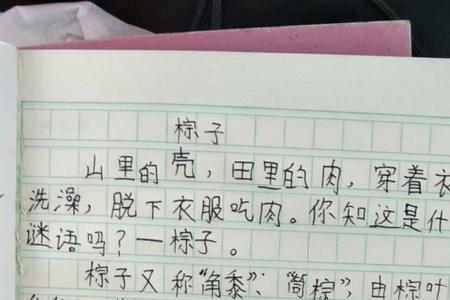 粽子
山里的壳，田里的肉，穿着衣
洗澡，脱下衣服吃肉。你知这是什
谜语吗？—粽子。
粽子又称“角黍”、“筒粽”，由粽叶